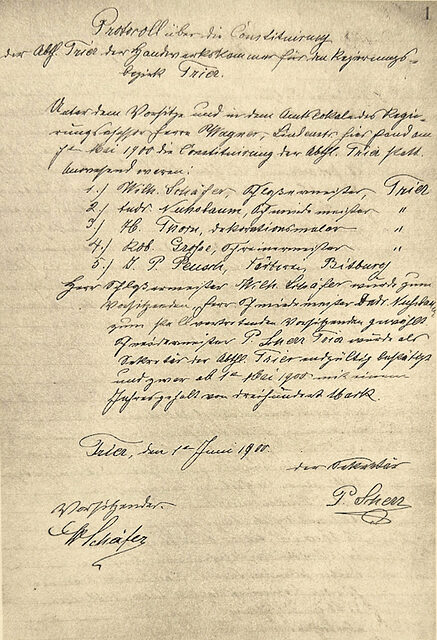 1
Protocoll über die Constituirung
der Abth. Trier der Handwerkskammer für den Regierungs-
bezirk Trier.
Unter dem Vorsitze und in dem Amtslokale des Regie-
rungsassessor Herrn Wagner, hier fand am
Mai 1900 die Constituirung der Abth. Trier statt
Anwesend waren:
1.) Wilh. Schäfer, Schloßermeister Trier
2.) Andr. Nußbaum, Schmiedemeister "
3.) H. Thorn, Dekorationsmaler "
4.) Rob. Grosse, Schreinermeister "
5.) J. P. Reusch, Bitburg
Herr Schloßermeister Wilh. Schäfer wurde zum
Vorsitzenden, Herr Schmiedemeister Andr. Nußbaum
zum stellvertretenden Vorsitzenden gewählt
Schneidermeister P. Scherz Trier wurde als
Sekretär der Abth. Trier endgültig bestätigt
und zwar ab 1ten Mai 1900 mit einem
Jahresgehalt von dreihundert Mark.
Trier, den 1ten Juni 1900.
der Sekretär
P. Scherz
Vorsitzender.
W Schäfer